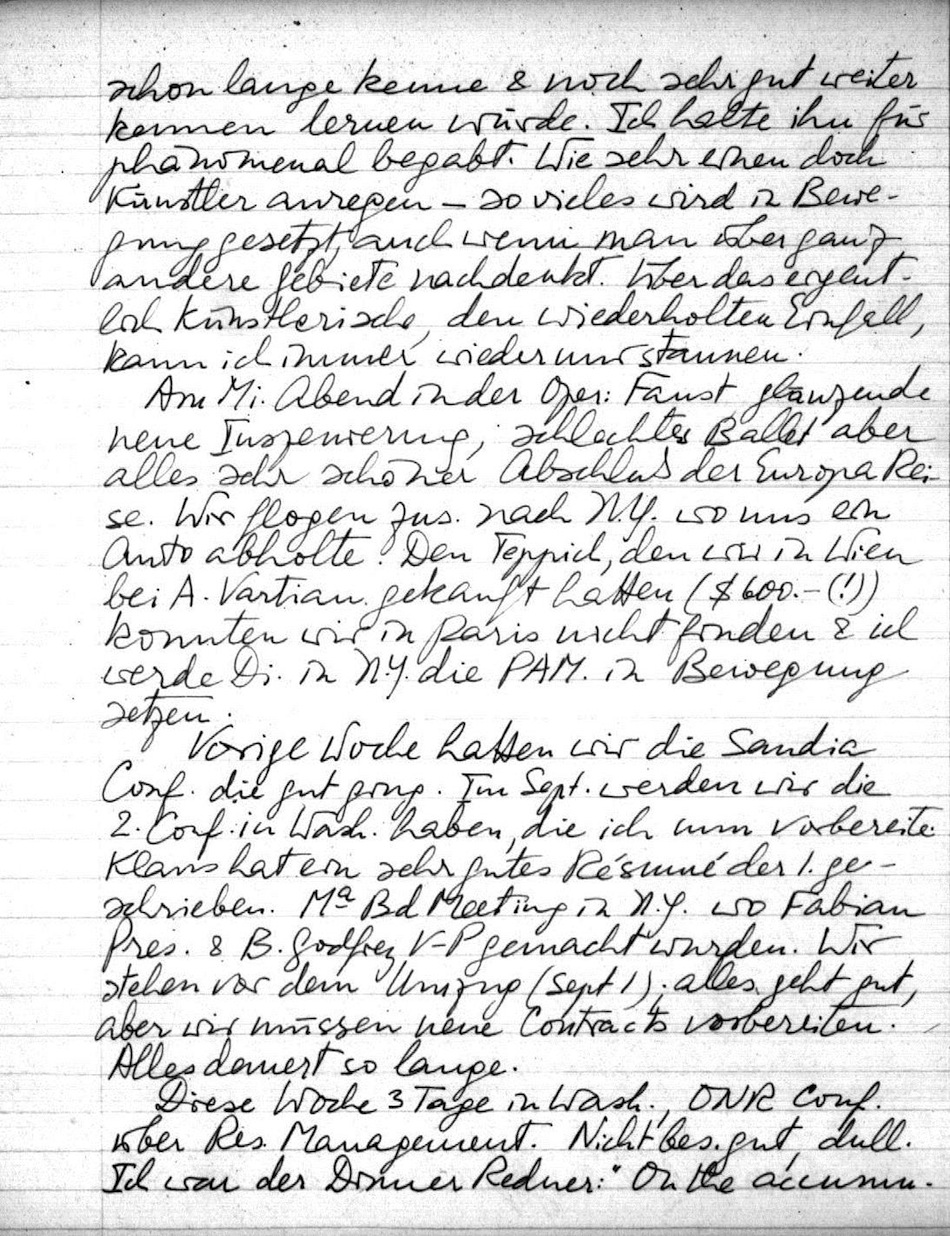 schon lange kenne & noch sehr gut weiter
kennen lernen würde. Ich halte ihn für
phänomenal begabt. Wie sehr einen doch
Künstler anregen – so vieles wird in Bewe-
gung gesetzt, auch wenn man über ganz
andere Gebiete nachdenkt. Über das eigent-
lich Künstlerische, den wiederholten Einfall,
kann ich immer wieder nur staunen.
Am Mi. Abend in der Oper: Faust glänzende
neue Inszenierung, schlechtes Ballet aber
alles sehr schöner Abschluß der Europa Rei-
se. Wir flogen zus. nach N.Y. wo uns ein
Auto abholte. Den Teppich, den wir in Wien
bei A. Vartian gekauft hatten ($600.– (!))
konnten wir in Paris nicht finden & ich
werde Di. in N.Y. die PAM. in Bewegung
setzen.
Vorige Woche hatten wir die Sandia
Conf. die gut ging. Im Sept. werden wir die
2. Conf. in Wash. haben, die ich nun vorbereite.
Klaus hat ein sehr gutes Résumé der 1. ge-
schrieben. Ma Bd Meeting in N.Y. wo Fabian
Pres. & B. Godfrey V-P gemacht wurden. Wir
stehen vor dem Umzug (Sept 1). alles geht gut,
aber wir müssen neue Contracts vorbereiten.
Alles dauert so lange.
Diese Woche 3 Tage in Wash., ONR Conf.
über Res. Management. Nicht bes. gut, dull.
Ich war der Dinner Redner: "On the accumu-